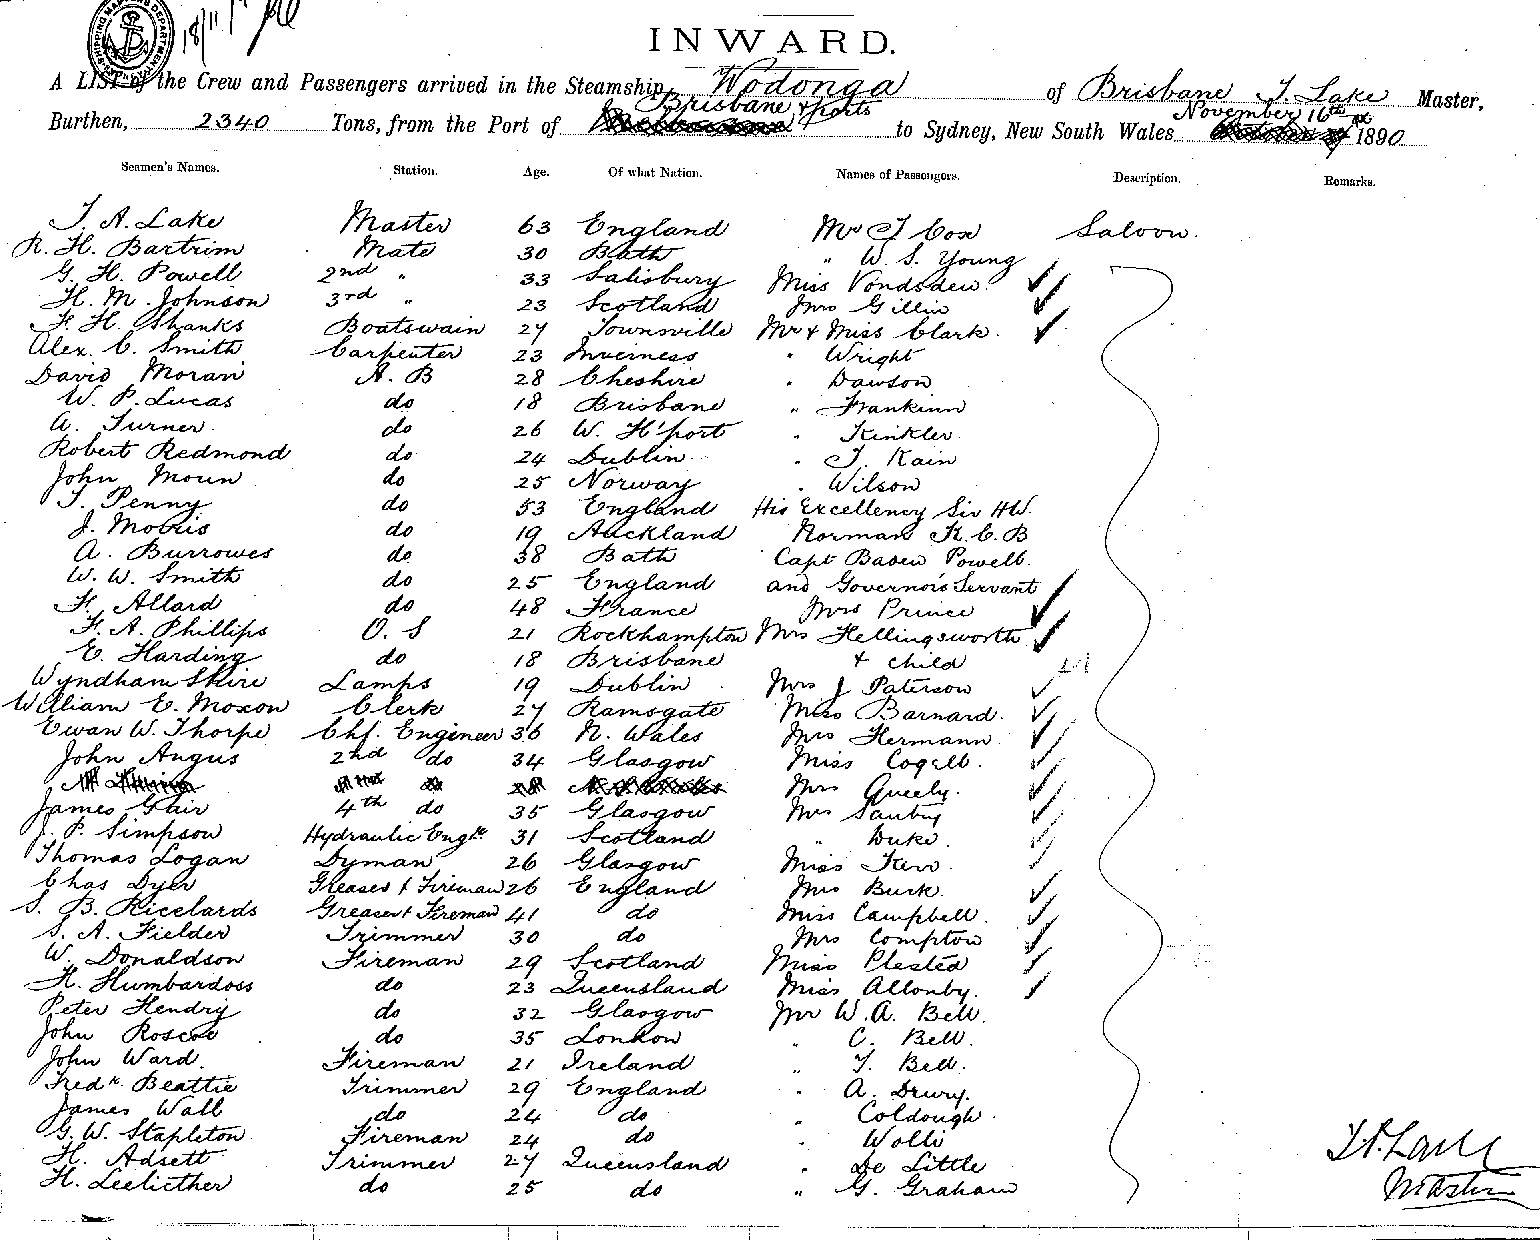 18/11
INWARD.
A LIST of the Crew and Passengers arrived in the Steamship Wodonga of Brisbane T. Lake Master,
Burthen, 2340 Tons, from the Port of Brisbane & ports to Sydney, New South Wales November 16th 1890
Seamen's Names. Station. Age. Of what Nation. Names of Passengers. Description. Remarks.
T. A. Lake Master 63 England Mr T Cox Saloon.
R. H. Bartrim Mate 30 Bath " W. S. Young
G. H. Powell 2nd " 33 Salisbury Miss Vondsden
H. M. Johnson 3rd " 23 Scotland Mrs Gillin
F. H. Shanks Boatswain 27 Townsville Mr & Miss Clark.
Alex. C. Smith Carpenter 23 Inverness " Wright
David Moran A. B 28 Cheshire " Dawson
W. P. Lucas do 18 Brisbane " Frankinn
A. Turner. do 26 W. H'port " Kinkler
Robert Redmond do 24 Dublin " T. Kain
John Moun do 25 Norway " Wilson
T. Penny do 53 England His Excellency Sir H.W.
J. Morris do 19 Auckland Norman K. C. B
A. Burrowes do 38 Bath Capt Baden Powell.
W. W. Smith do 25 England and Governor's Servant
F. Allard do 48 France Mrs Prince
F. A. Phillips O. S 21 Rockhampton Mrs Hellingsworth
E. Harding do 18 Brisbane & child
Wyndham Shire Lamps 19 Dublin Mrs J Paterson
William E. Moxon Clerk 27 Ramsgate Miss Barnard.
Ewan W. Thorpe Chf. Engineer 36 N. Wales Mrs Hermann
John Angus 2nd do 34 Glasgow Miss Cogell.
Mrs Queely.
James Gair 4th do 35 Glasgow Mrs Santry
J. P. Simpson Hydraulic Engr. 31 Scotland " Duke
Thomas Logan Dyman 26 Glasgow Miss Kerr
Chas Dyer Greaser & Fireman 26 England Mrs Burk.
S. B. Ricelards Greaser & Fireman 41 do Miss Campbell.
S. A. Fielder Trimmer 30 do Mrs Compton
W. Donaldson Fireman 29 Scotland Miss Plested
H. Humbardoss do 23 Queensland Miss Allonby.
Peter Hendry do 32 Glasgow Mr W. A. Bell.
John Roscoe do 35 London " C. Bell.
John Ward. Fireman 21 Ireland " T. Bell.
Fredk. Beattie Trimmer 29 England " A. Drury.
James Wall do 24 do " Coldough
G. W. Stapleton Fireman 24 do " Wolli
H. Adsett Trimmer 27 Queensland " De Little
H. Leelicther do 25 do " G. Graham
T. A. Lake
Master